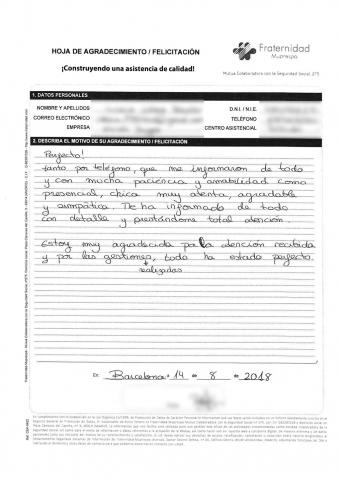 HOJA DE AGRADECIMIENTO / FELICITACIÓN
¡Construyendo una asistencia de calidad!
Fraternidad
Muprespa
Mutua Colaboradora con la Seguridad Social, 275
1. DATOS PERSONALES
NOMBRE Y APELLIDOS
D.N.I. / N.I.E.
CORREO ELECTRÓNICO
TELÉFONO
EMPRESA
CENTRO ASISTENCIAL
2. DESCRIBA EL MOTIVO DE SU AGRADECIMIENTO / FELICITACIÓN
Perfecto!
tanto por teléfono, que me informaron de todo
y con mucha paciencia y amabilidad como
presencial, chica muy atenta, agradable
y simpática. Me ha informado de todo
con detalle y prestándome total atención.
Estoy muy agradecida por la atención recibida
y por las gestiones, todo ha estado perfecto.
realizadas
En Barcelona a 14 de 8 de 2018